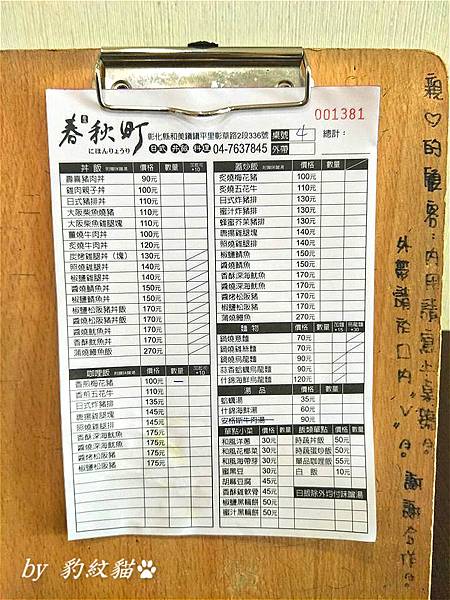 001381
春秋町
にほんりょうり
彰化縣和美鎮鎮平里彰草路2段336號
日式 丼飯 料理 04-7637845
桌號 4 總計：
外帶
丼飯 附贈味噌湯 價格 數量 加起司+10
壽喜豬肉丼 90元
雞肉親子丼 100元
日式豬排丼 110元
大阪柴魚燒豬 110元
大阪柴魚雞腿塊 110元
薑燒牛肉丼 100元
炙燒牛肉丼 120元
炭烤雞腿丼（塊） 130元
照燒雞腿丼 140元
椒鹽雞腿丼 140元
醬燒鯖魚丼 150元
椒鹽鯖魚丼 150元
椒鹽松阪豬丼飯 170元
醬燒松阪豬丼飯 170元
醬燒魷魚丼 170元
香酥魷魚丼 170元
蒲燒鰻魚飯 270元
咖哩飯 附贈味噌湯 價格 數量 加起司+10
香煎梅花豬 100元 一
香煎五花牛 110元
日式炸豬排 135元
唐揚雞腿塊 145元
照燒雞腿排 145元
香酥深海魷魚 175元
醬燒深海魷魚 175元
醬烤松阪豬 175元
椒鹽松阪豬 175元
蓋炒飯 附贈味噌湯 價格 數量
炙燒梅花豬 100元
炙燒五花牛 110元
日式炸豬排 130元
蜜汁炸豬排 130元
蜂蜜芥茉豬排 130元
唐揚雞腿塊 140元
照燒雞腿排 140元
椒鹽鯖魚 150元
醬燒鯖魚 150元
香酥深海魷魚 170元
醬燒深海魷魚 170元
醬烤松阪豬 170元
椒鹽松阪豬 170元
蒲燒鰻魚 270元
麵物 價格 數量 加麵+15 烏龍麵+30
鍋燒意麵 70元
鍋燒雞絲麵 70元
鍋燒烏龍麵 90元
蒜香蛤蠣烏龍麵 90元
什錦海鮮烏龍麵 120元
湯品 價格 數量
蛤蠣湯 35元
什錦海鮮湯 60元
安格斯牛肉湯 90元
單點小菜 價格 數量 飯類單點 價格 數量
和風洋蔥 30元 時蔬丼飯 50元
和風花椰菜 30元 時蔬蛋炒飯 50元
和風海帶芽 30元 單品咖哩飯 60元
蜜黑豆 30元 白飯 10元
胡麻豆腐 45元
香酥軟骨 45元
椒鹽黑輪餅 50元
蜜汁黑輪餅 50元
白飯除外均付味噌湯
親♡的顧客：內用請寫上桌號。
外帶請在口內"V"。
謝謝合作。
by 豹紋貓